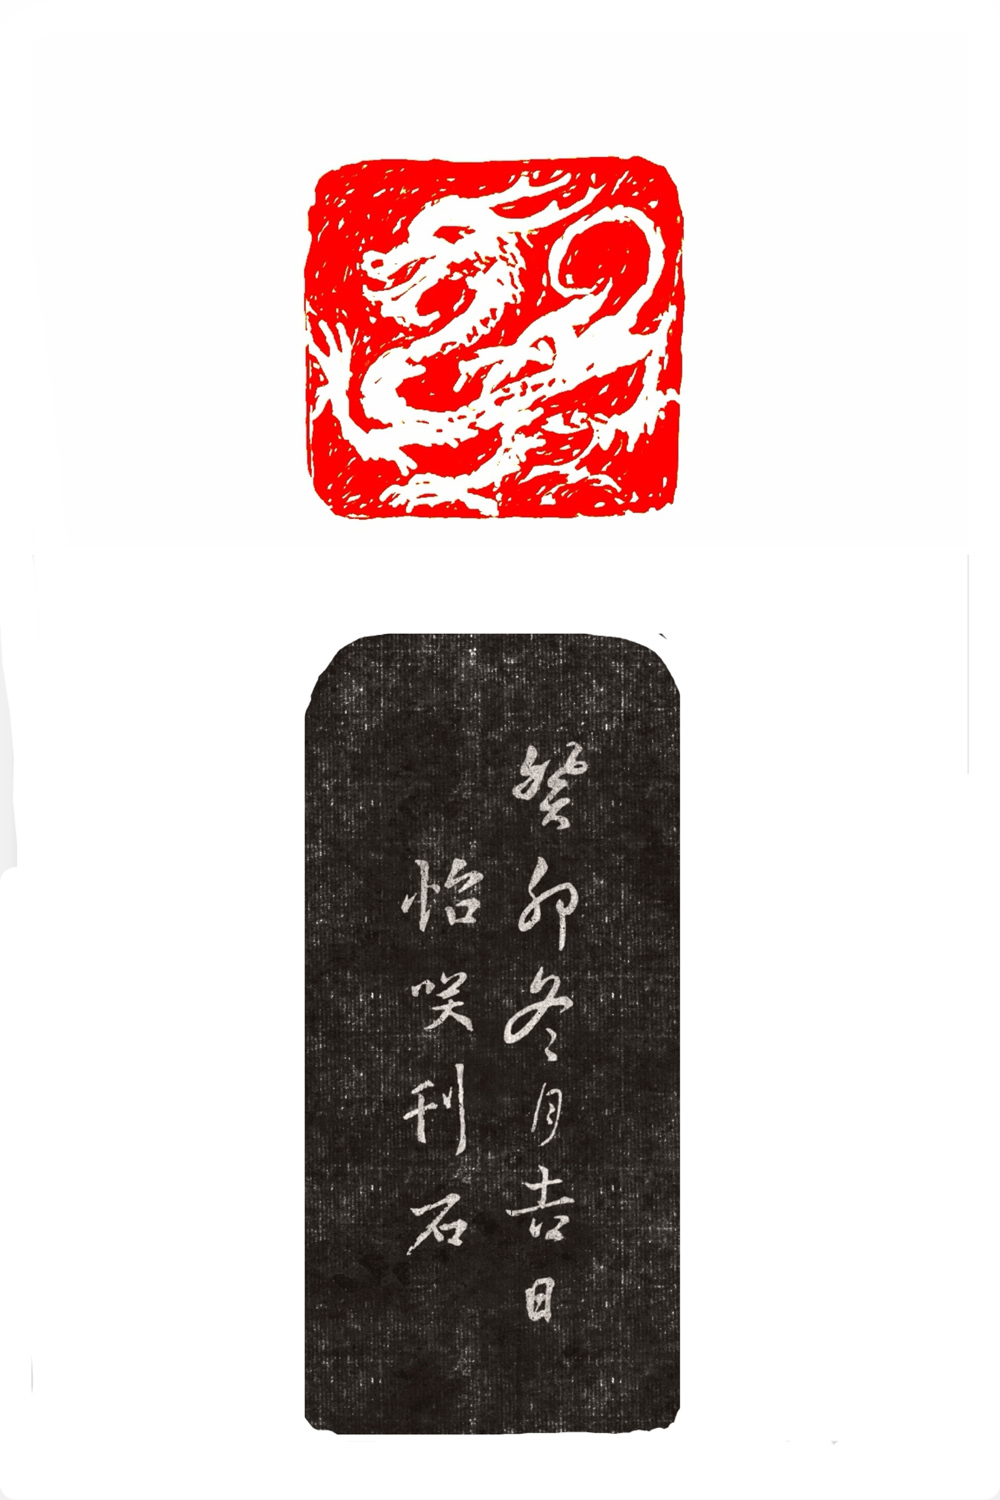 癸卯冬月吉日
怡咲刊石